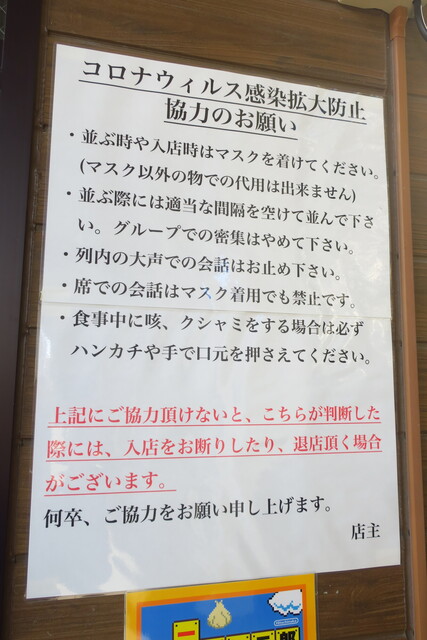 コロナウィルス感染拡大防止
協力のお願い
・並ぶ時や入店時はマスクを着けてください。
(マスク以外の物での代用は出来ません)
・並ぶ際には適当な間隔を空けて並んで下さ
い。グループでの密集はやめて下さい。
・列内の大声での会話はお止め下さい。
・席での会話はマスク着用でも禁止です。
・食事中に咳、クシャミをする場合は必ず
ハンカチや手で口元を押さえてください。
上記にご協力頂けないと、こちらが判断した
際には、入店をお断りしたり、退店頂く場合
がございます。
何卒、ご協力をお願い申し上げます。
店主